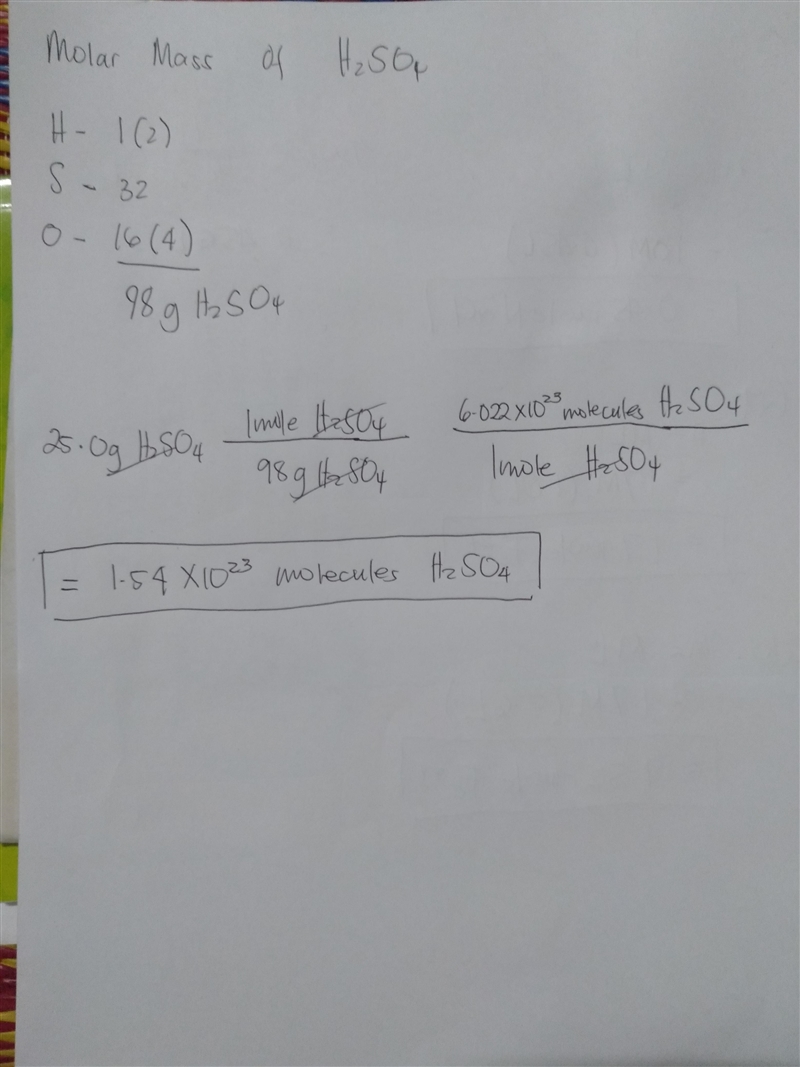 Molar Mass of H₂SO₄
H - 1(2)
S - 32
O - 16(4)
98g H₂SO₄
25.0g H₂SO₄ 1mole H₂SO₄ 6.022X10²³ molecules H₂SO₄
98g H₂SO₄ 1mole H₂SO₄
= 1.54 X10²³ molecules H₂SO₄